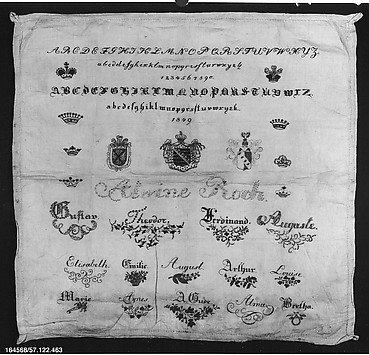 ABCDEFGHIKLMNOPQRSTUVWXYZ
abcddefghiklmnopqrsftuvwxyzk
1234567890.
ABCDEFGHIKLMNOPQRSTUVWXYZ.
abcdefghiklmnopqrsftuvwxyzk.
1849
Alwine Koch.
Gustav. Theodor. Ferdinand. Auguste.
Elisabeth. Emilie. August. Arthur. Louise.
Marie. Agnes. Alma. Bertha.
164568/57.122.463